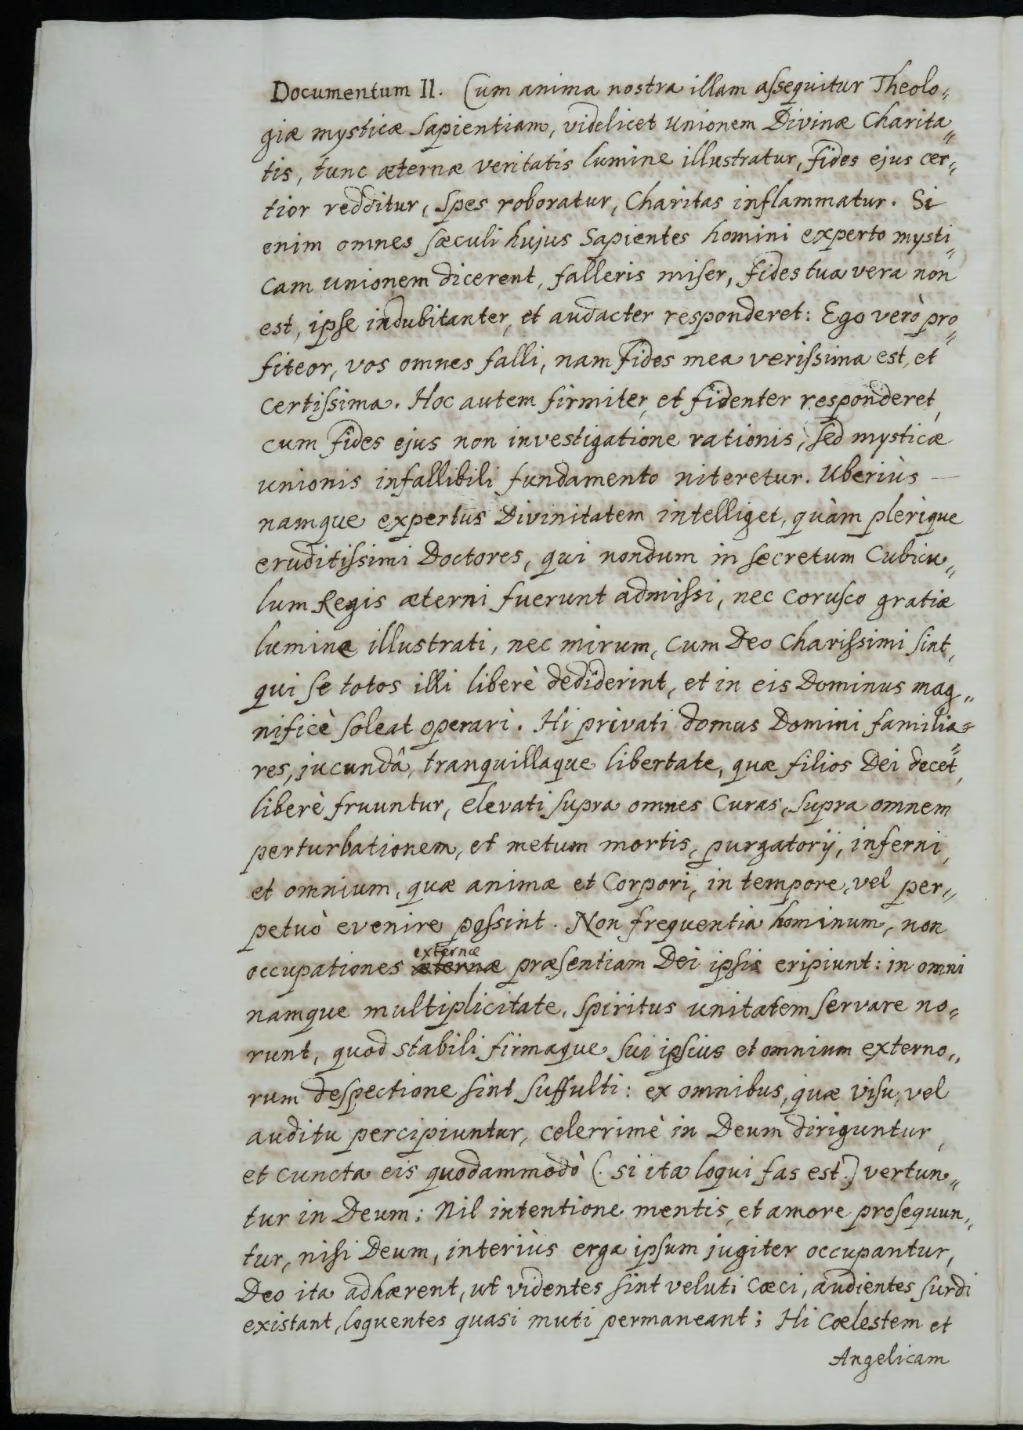 Documentum II. Cum anima nostra illam aſsequitur Theolo„
giæ mysticæ Sapientiam, videlicet unionem Divinæ Charita„
tis, tunc æternæ veritatis lumine illustratur, fides ejus cer„
tior redditur, Spes roboratur, Charitas inflammatur. Si
enim omnes ſæculi hujus Sapientes homini experto mysti„
cam unionem dicerent, falleris miser, fides tua vera non
est, ipſe indubitanter, et audacter responderet: Ego verò pro„
fiteor, vos omnes falli, nam fides mea veriſsima est, et
certiſsima. Hoc autem firmiter, et fidenter responderet,
cum fides ejus non investigatione rationis, ſed mysticæ
unionis infallibili fundamento niteretur. Uberiùs —
namque expertus Divinitatem intelliget, quàm plerique
eruditiſsimi Doctores, qui nondum in ſecretum Cubicu„
lum Regis æterni fuerunt admiſsi, nec coruſco gratiæ
lumine illustrati, nec mirum, cum Deo chariſsimi ſint,
qui ſe totos illi liberè dediderint, et in eis Dominus mag„
nificè ſoleat operari. Hi privati domus Domini familia„
res, jucundâ, tranquillaque libertate, quæ filios Dei decet,
liberè fruuntur, elevati ſupra omnes Curas, ſupra omnem
perturbationem, et metum mortis, purgatorij, inferni,
et omnium, quæ animæ et Corpori, in tempore, vel per„
petuò evenire poſsint. Non frequentia hominum, non
externæ
occupationes æternæ præſentiam Dei ipſis eripiunt: in omni
namque multiplicitate, ſpiritus unitatem ſervare no„
runt, quod stabili firmaque ſui ipſius et omnium externo„
rum deſpectione ſint ſuffulti: ex omnibus, quæ viſu, vel
auditu percipiuntur, celerrimè in Deum diriguntur,
et cuncta eis quodammodò (. si ita loqui fas est .) vertun„
tur in Deum; Nil intentione mentis, et amore proſequun„
tur, niſi Deum, interiùs erga ipſum jugiter occupantur,
Deo ita adhærent, ut videntes ſint veluti Cæci, audientes ſurdi
existant, loquentes quasi muti permaneant; Hi Cœlestem et
Angelicam